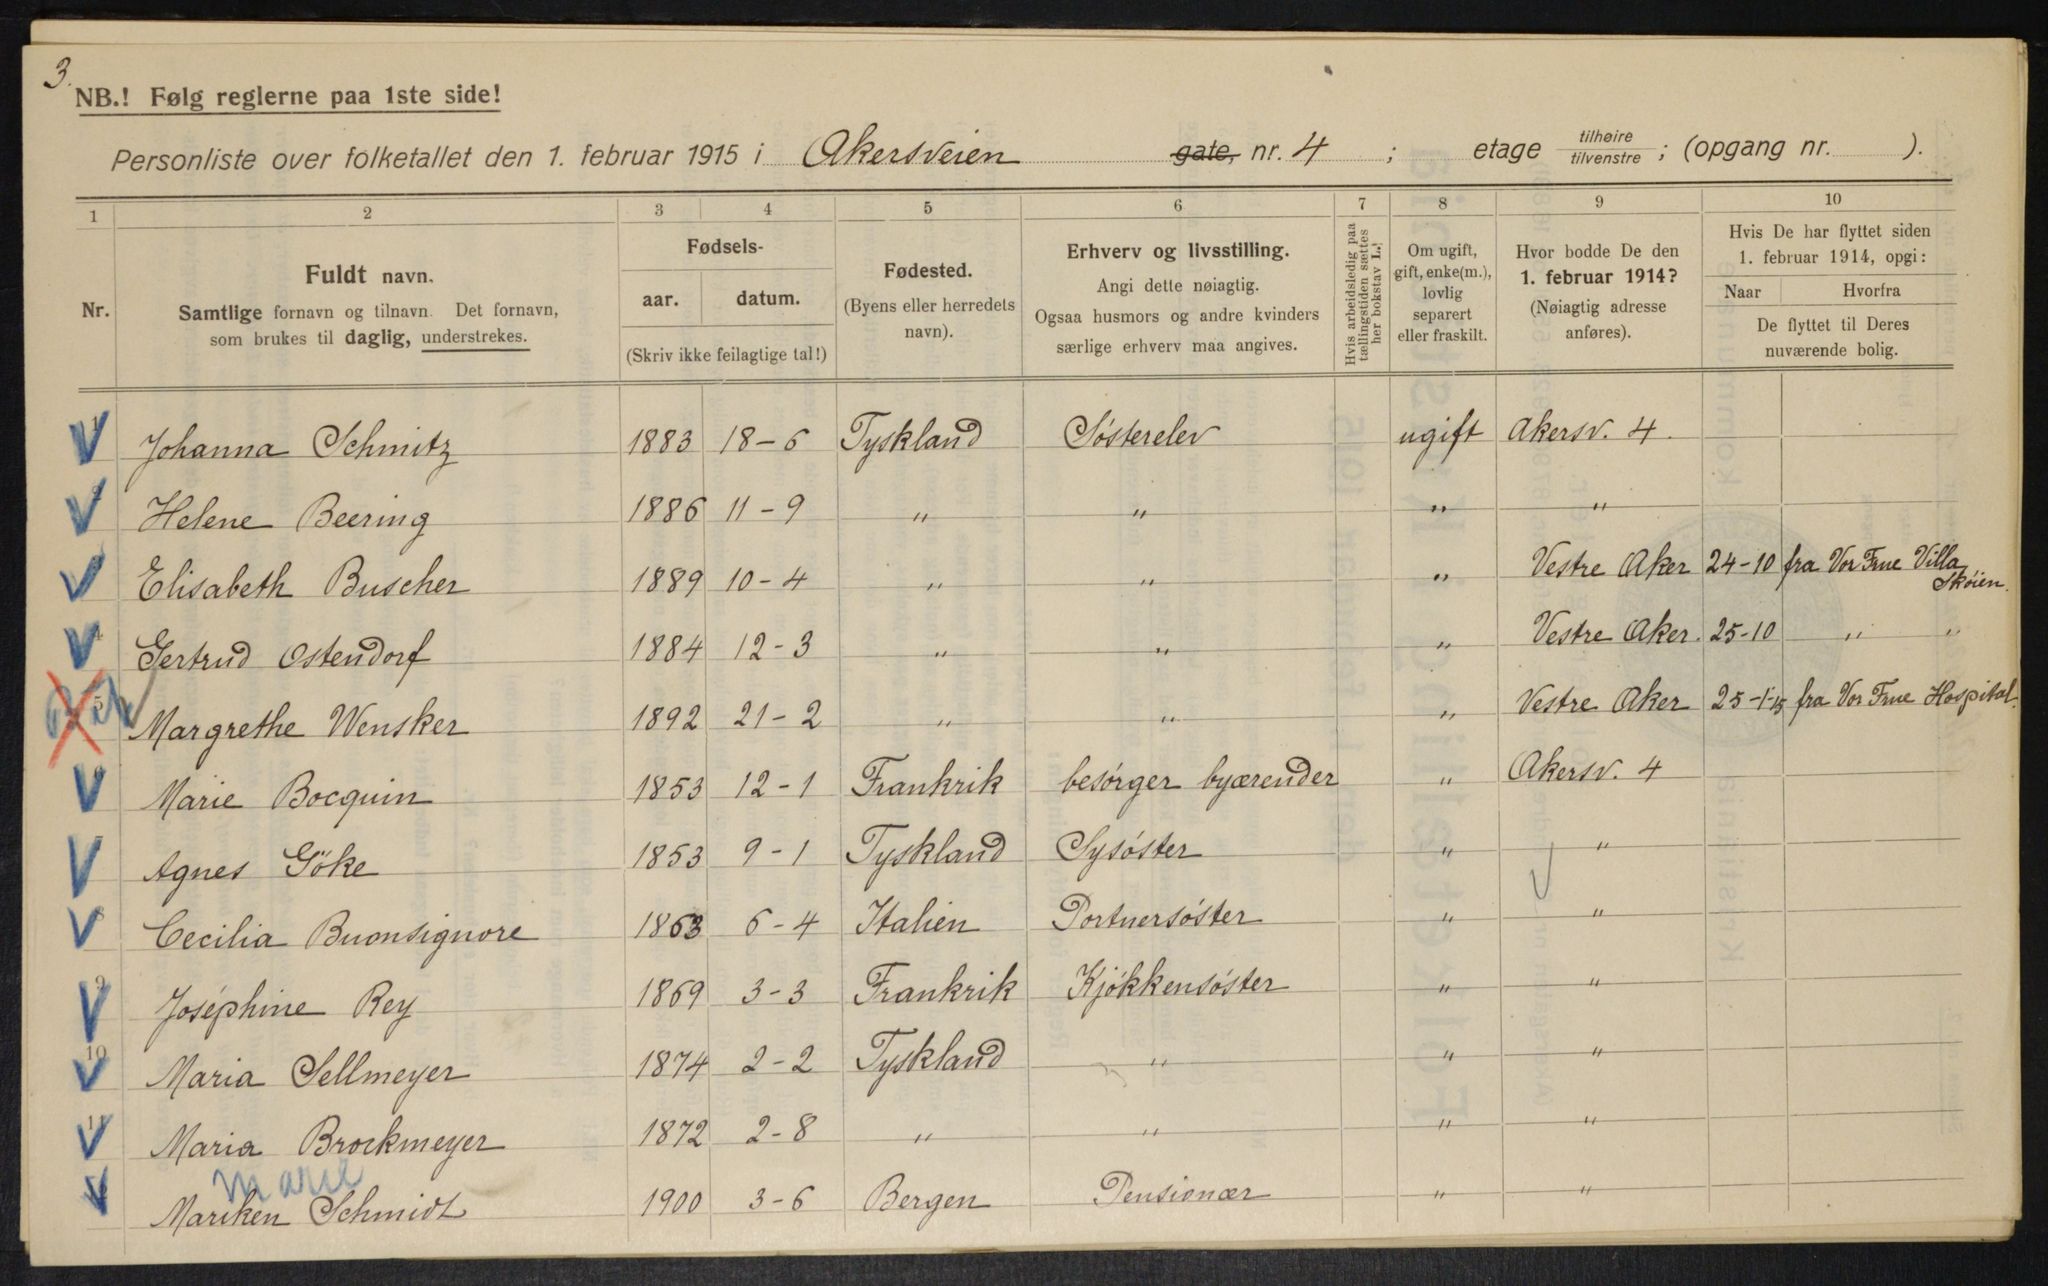 3.
NB.! Følg reglerne paa 1ste side!
Personliste over folketallet den 1. februar 1915 i Akersveien gate, nr. 4 ; etage tilhøire tilvenstre ; (opgang nr. ).
1 2 3 4 5 6 7 8 9 10
Nr.
Fuldt navn.
Samtlige fornavn og tilnavn. Det fornavn,
som brukes til daglig, understrekes.
Fødsels-
aar. datum.
(Skriv ikke feilagtige tal!)
Fødested.
(Byens eller herredets
navn).
Erhverv og livsstilling.
Angi dette nøiagtig.
Ogsaa husmors og andre kvinders
særlige erhverv maa angives.
Hvis arbeidsledig paa
tællingstiden sættes
her bokstav L.!
Om ugift,
gift, enke(m.),
lovlig
separert
eller fraskilt.
Hvor bodde De den
1. februar 1914?
(Nøiagtig adresse
anføres).
Hvis De har flyttet siden
1. februar 1914, opgi:
Naar Hvorfra
De flyttet til Deres
nuværende bolig.
1 Johanna Schmitz 1883 18-6 Tyskland Søsterelev ugift Akersv. 4.
2 Helene Beering 1886 11-9 " " " "
3 Elisabeth Buscher 1889 10-4 " " " Vestre Aker 24-10 fra Vor Frue Villa
Skøien.
4 Gertrud Ostendorf 1884 12-3 " " " Vestre Aker. 25-10 " "
5 Margrethe Wensker 1892 21-2 " " " Vestre Aker 25-1-15 fra Vor Frue Hospital.
6 Marie Bocquin 1853 12-1 Frankrik besørger byærender " Akersv. 4
Agnes Göke 1853 9-1 Tyskland Sysøster " "
8 Cecilia Buonsignore 1863 6-4 Italien Portnersøster " "
9 Joséphine Rey 1869 3-3 Frankrik Kjøkkensøster " "
10 Maria Sellmeyer 1874 2-2 Tyskland " " "
11 Maria Brockmeyer 1872 2-8 " " " "
Marie
Mariken Schmidt 1900 3-6 Bergen Pensionær " "